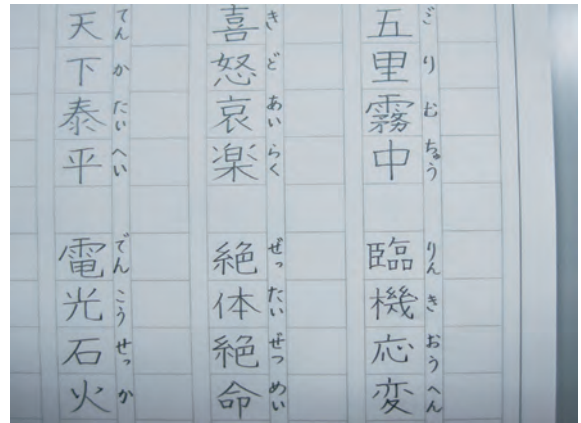 五里霧中
ごりむちゅう
臨機応変
りんきおうへん
喜怒哀楽
きどあいらく
絶体絶命
ぜったいぜつめい
天下泰平
てんかたいへい
電光石火
でんこうせっか